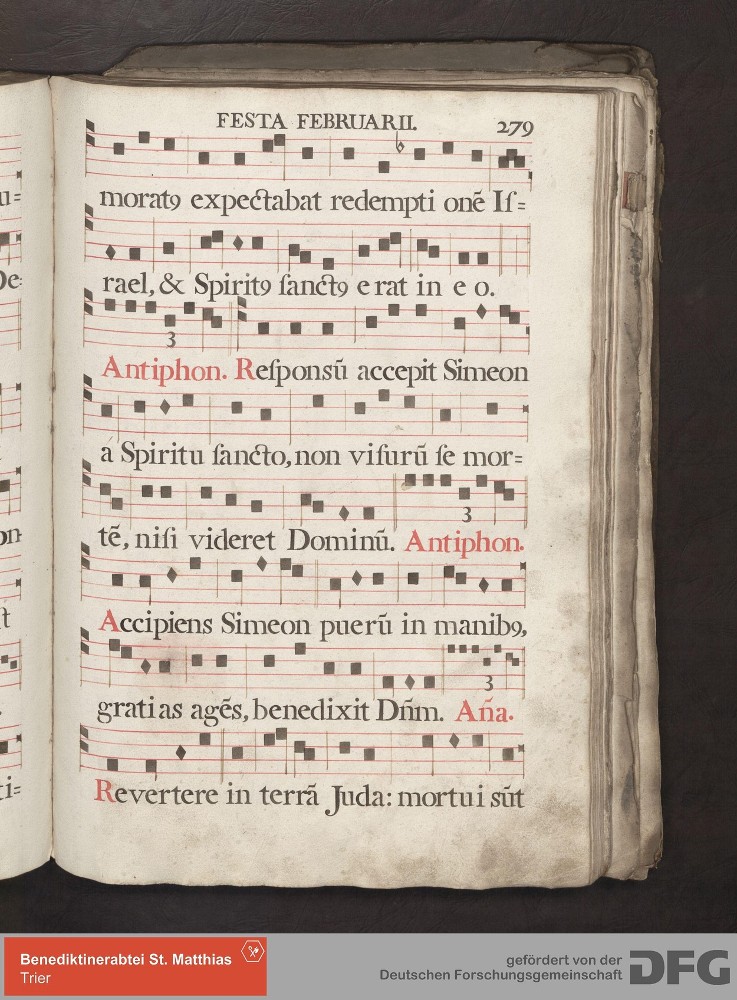 FESTA FEBRUARII. 279
u=
morat9 expectabat redempti onē Iſ=
De-
rael, & Spirit9 ſanct9 e rat in e o.
3
Antiphon. Reſponsū accepit Simeon
á Spiritu ſancto, non viſurū ſe mor=
on-
tē, niſi videret Dominū. Antiphon.
3
Accipiens Simeon puerū in manib9,
3
gratias agēs, benedixit Dn̄m. An̄a.
ti=
Revertere in terrā Juda: mortui sūt
Benediktinerabtei St. Matthias
Trier
gefördert von der
Deutschen Forschungsgemeinschaft
DFG